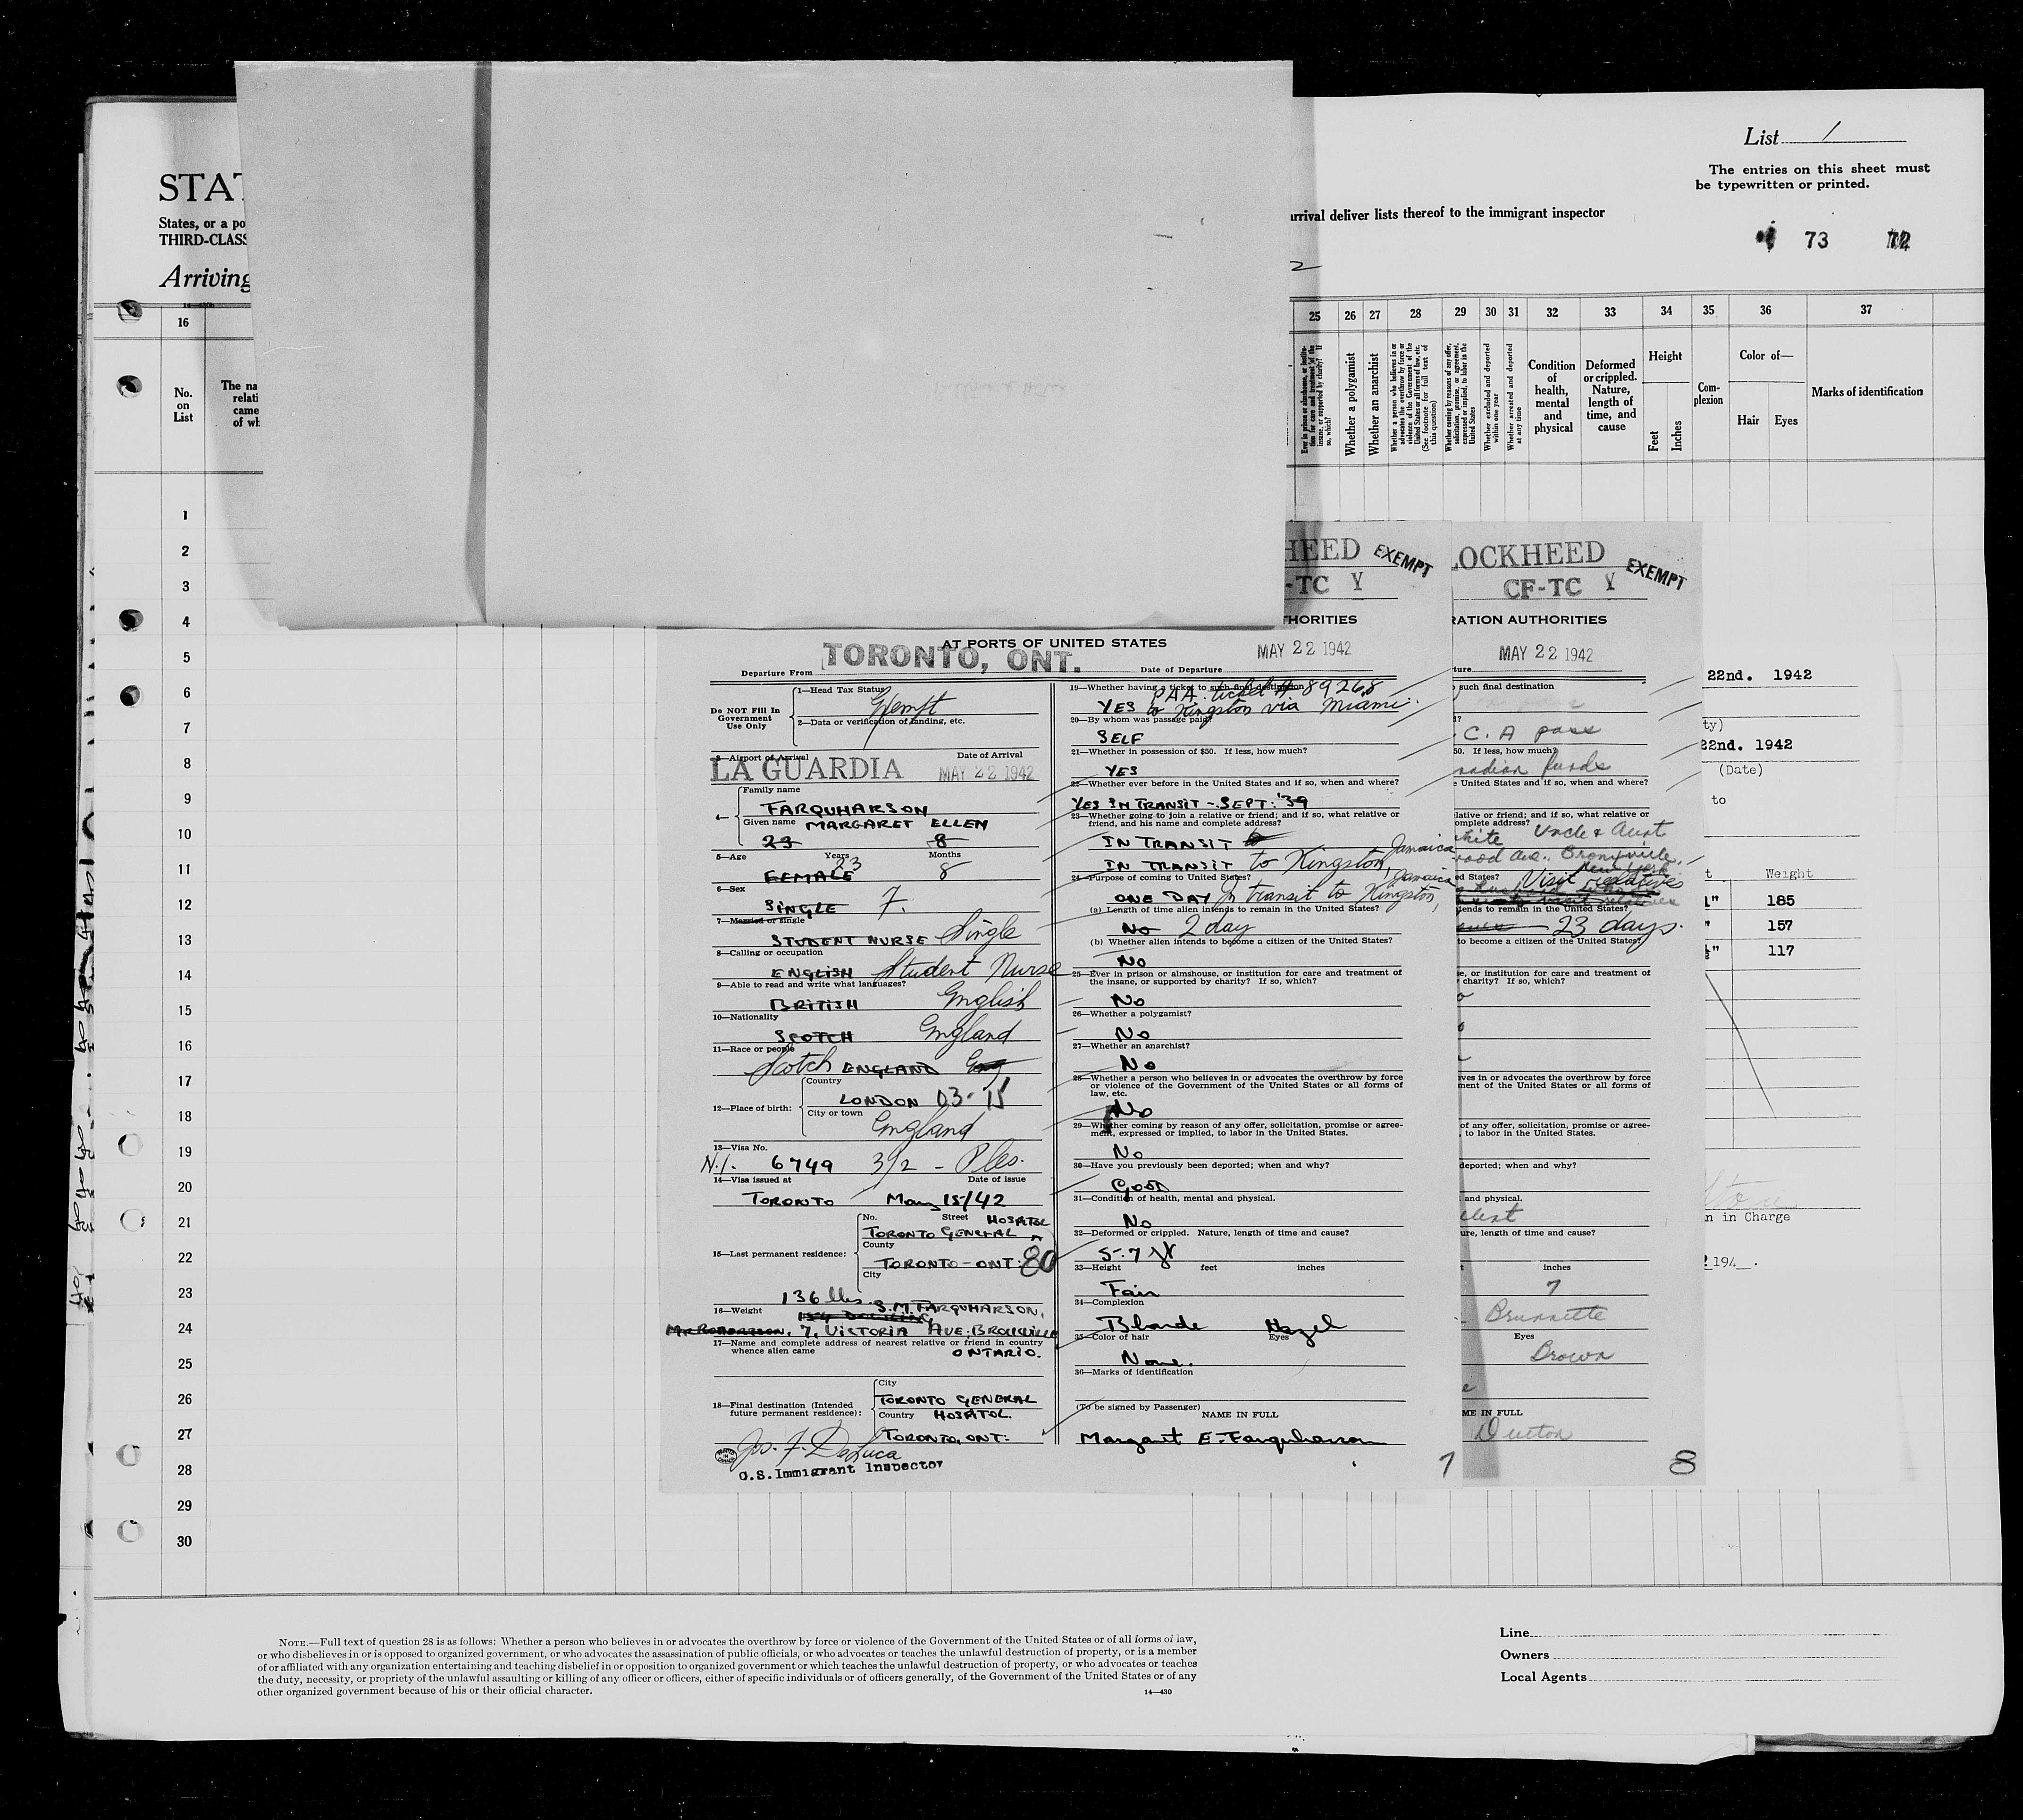 List 1
The entries on this sheet must
be typewritten or printed.
STAT
States, or a po
THIRD-CLASS
arrival deliver lists thereof to the immigrant inspector
73
Arriving
2
16
25 26 27 28 29 30 31 32 33 34 35 36 37
No.
on
List
The na
relati
came
of wh
Whether a polygamist
Whether an anarchist
Condition
of
health,
mental
and
physical
Deformed
or crippled.
Nature,
length of
time, and
cause
Height
Feet
Inches
Com-
plexion
Color of—
Hair Eyes
Marks of identification
1
2
3
4
5
6
7
8
9
10
11
12
13
14
15
16
17
18
19
20
21
22
23
24
25
26
27
28
29
30
HEED EXEMPT
-TC Y
THORITIES
AT PORTS OF UNITED STATES
Departure From TORONTO, ONT.
Date of Departure MAY 22 1942
Do NOT Fill In
Government
Use Only
1—Head Tax Status
Exempt
2—Data or verification of landing, etc.
3—Airport of Arrival Date of Arrival
LA GUARDIA MAY 22 1942
4—
Family name
FARQUHARSON
Given name MARGARET ELLEN
23 8
5—Age Years Months
23 8
FEMALE
6—Sex
SINGLE F.
7—Married or single
STUDENT NURSE Single
8—Calling or occupation
ENGLISH Student Nurse
9—Able to read and write what languages?
BRITISH English
10—Nationality
SCOTCH England
11—Race or people
Scotch ENGLAND Eng
12—Place of birth:
Country
LONDON 03-15
City or town
England
13—Visa No.
N.I. 6749 3/2 - Ples.
14—Visa issued at Date of issue
TORONTO May 15/42
15—Last permanent residence:
No. Street HOSPITOL
TORONTO GENERAL
County
TORONTO-ONT: 80
City
136 lbs.
16—Weight S.M. FARQUHARSON,
7, VICTORIA AVE. BROCKVILLE
17—Name and complete address of nearest relative or friend in country
whence alien came ONTARIO.
18—Final destination (Intended
future permanent residence):
City
TORONTO GENERAL
Country HOSPITOL.
TORONTO, ONT:
Jos. F. DeLuca
U.S. Immigrant Inspector
19—Whether having a ticket to such final destination
P.A.A. ticket # 89268
YES to Kingston via Miami.
20—By whom was passage paid?
SELF
21—Whether in possession of $50. If less, how much?
YES
22—Whether ever before in the United States and if so, when and where?
YES IN TRANSIT - SEPT: '39
23—Whether going to join a relative or friend; and if so, what relative or
friend, and his name and complete address?
IN TRANSIT to
IN TRANSIT to Kingston, Jamaica
24—Purpose of coming to United States?
ONE DAY In transit to Kingston, Jamaica
(a) Length of time alien intends to remain in the United States?
No 2 day
(b) Whether alien intends to become a citizen of the United States?
No
25—Ever in prison or almshouse, or institution for care and treatment of
the insane, or supported by charity? If so, which?
No
26—Whether a polygamist?
No
27—Whether an anarchist?
No
28—Whether a person who believes in or advocates the overthrow by force
or violence of the Government of the United States or all forms of
law, etc.
No
29—Whether coming by reason of any offer, solicitation, promise or agree-
ment, expressed or implied, to labor in the United States.
No
30—Have you previously been deported; when and why?
Good
31—Condition of health, mental and physical.
No
32—Deformed or crippled. Nature, length of time and cause?
5-7
33—Height feet inches
Fair
34—Complexion
Blonde Hazel
35—Color of hair Eyes
None.
36—Marks of identification
(To be signed by Passenger)
NAME IN FULL
Margaret E. Farquharson
7
LOCKHEED EXEMPT
CF-TC Y
RATION AUTHORITIES
ture MAY 22 1942
such final destination
C. A pass
50. If less, how much?
nadian funds
e United States and if so, when and where?
elative or friend; and if so, what relative or
omplete address?
white Uncle & Aunt
wood Ave., Bronxville,
New York
ed States? Visit relatives
tends to remain in the United States?
23 days.
to become a citizen of the United States?
se, or institution for care and treatment of
charity? If so, which?
ves in or advocates the overthrow by force
ment of the United States or all forms of
of any offer, solicitation, promise or agree-
, to labor in the United States.
deported; when and why?
and physical.
ure, length of time and cause?
inches
7
Brunnette
Eyes
Brown
ME IN FULL
Dutton
8
22nd. 1942
ty)
22nd. 1942
(Date)
to
t Weight
1" 185
" 157
" 117
n in Charge
194 .
NOTE.—Full text of question 28 is as follows: Whether a person who believes in or advocates the overthrow by force or violence of the Government of the United States or of all forms of law,
or who disbelieves in or is opposed to organized government, or who advocates the assassination of public officials, or who advocates or teaches the unlawful destruction of property, or is a member
of or affiliated with any organization entertaining and teaching disbelief in or opposition to organized government or which teaches the unlawful destruction of property, or who advocates or teaches
the duty, necessity, or propriety of the unlawful assaulting or killing of any officer or officers, either of specific individuals or of officers generally, of the Government of the United States or of any
other organized government because of his or their official character.
14—430
Line
Owners
Local Agents